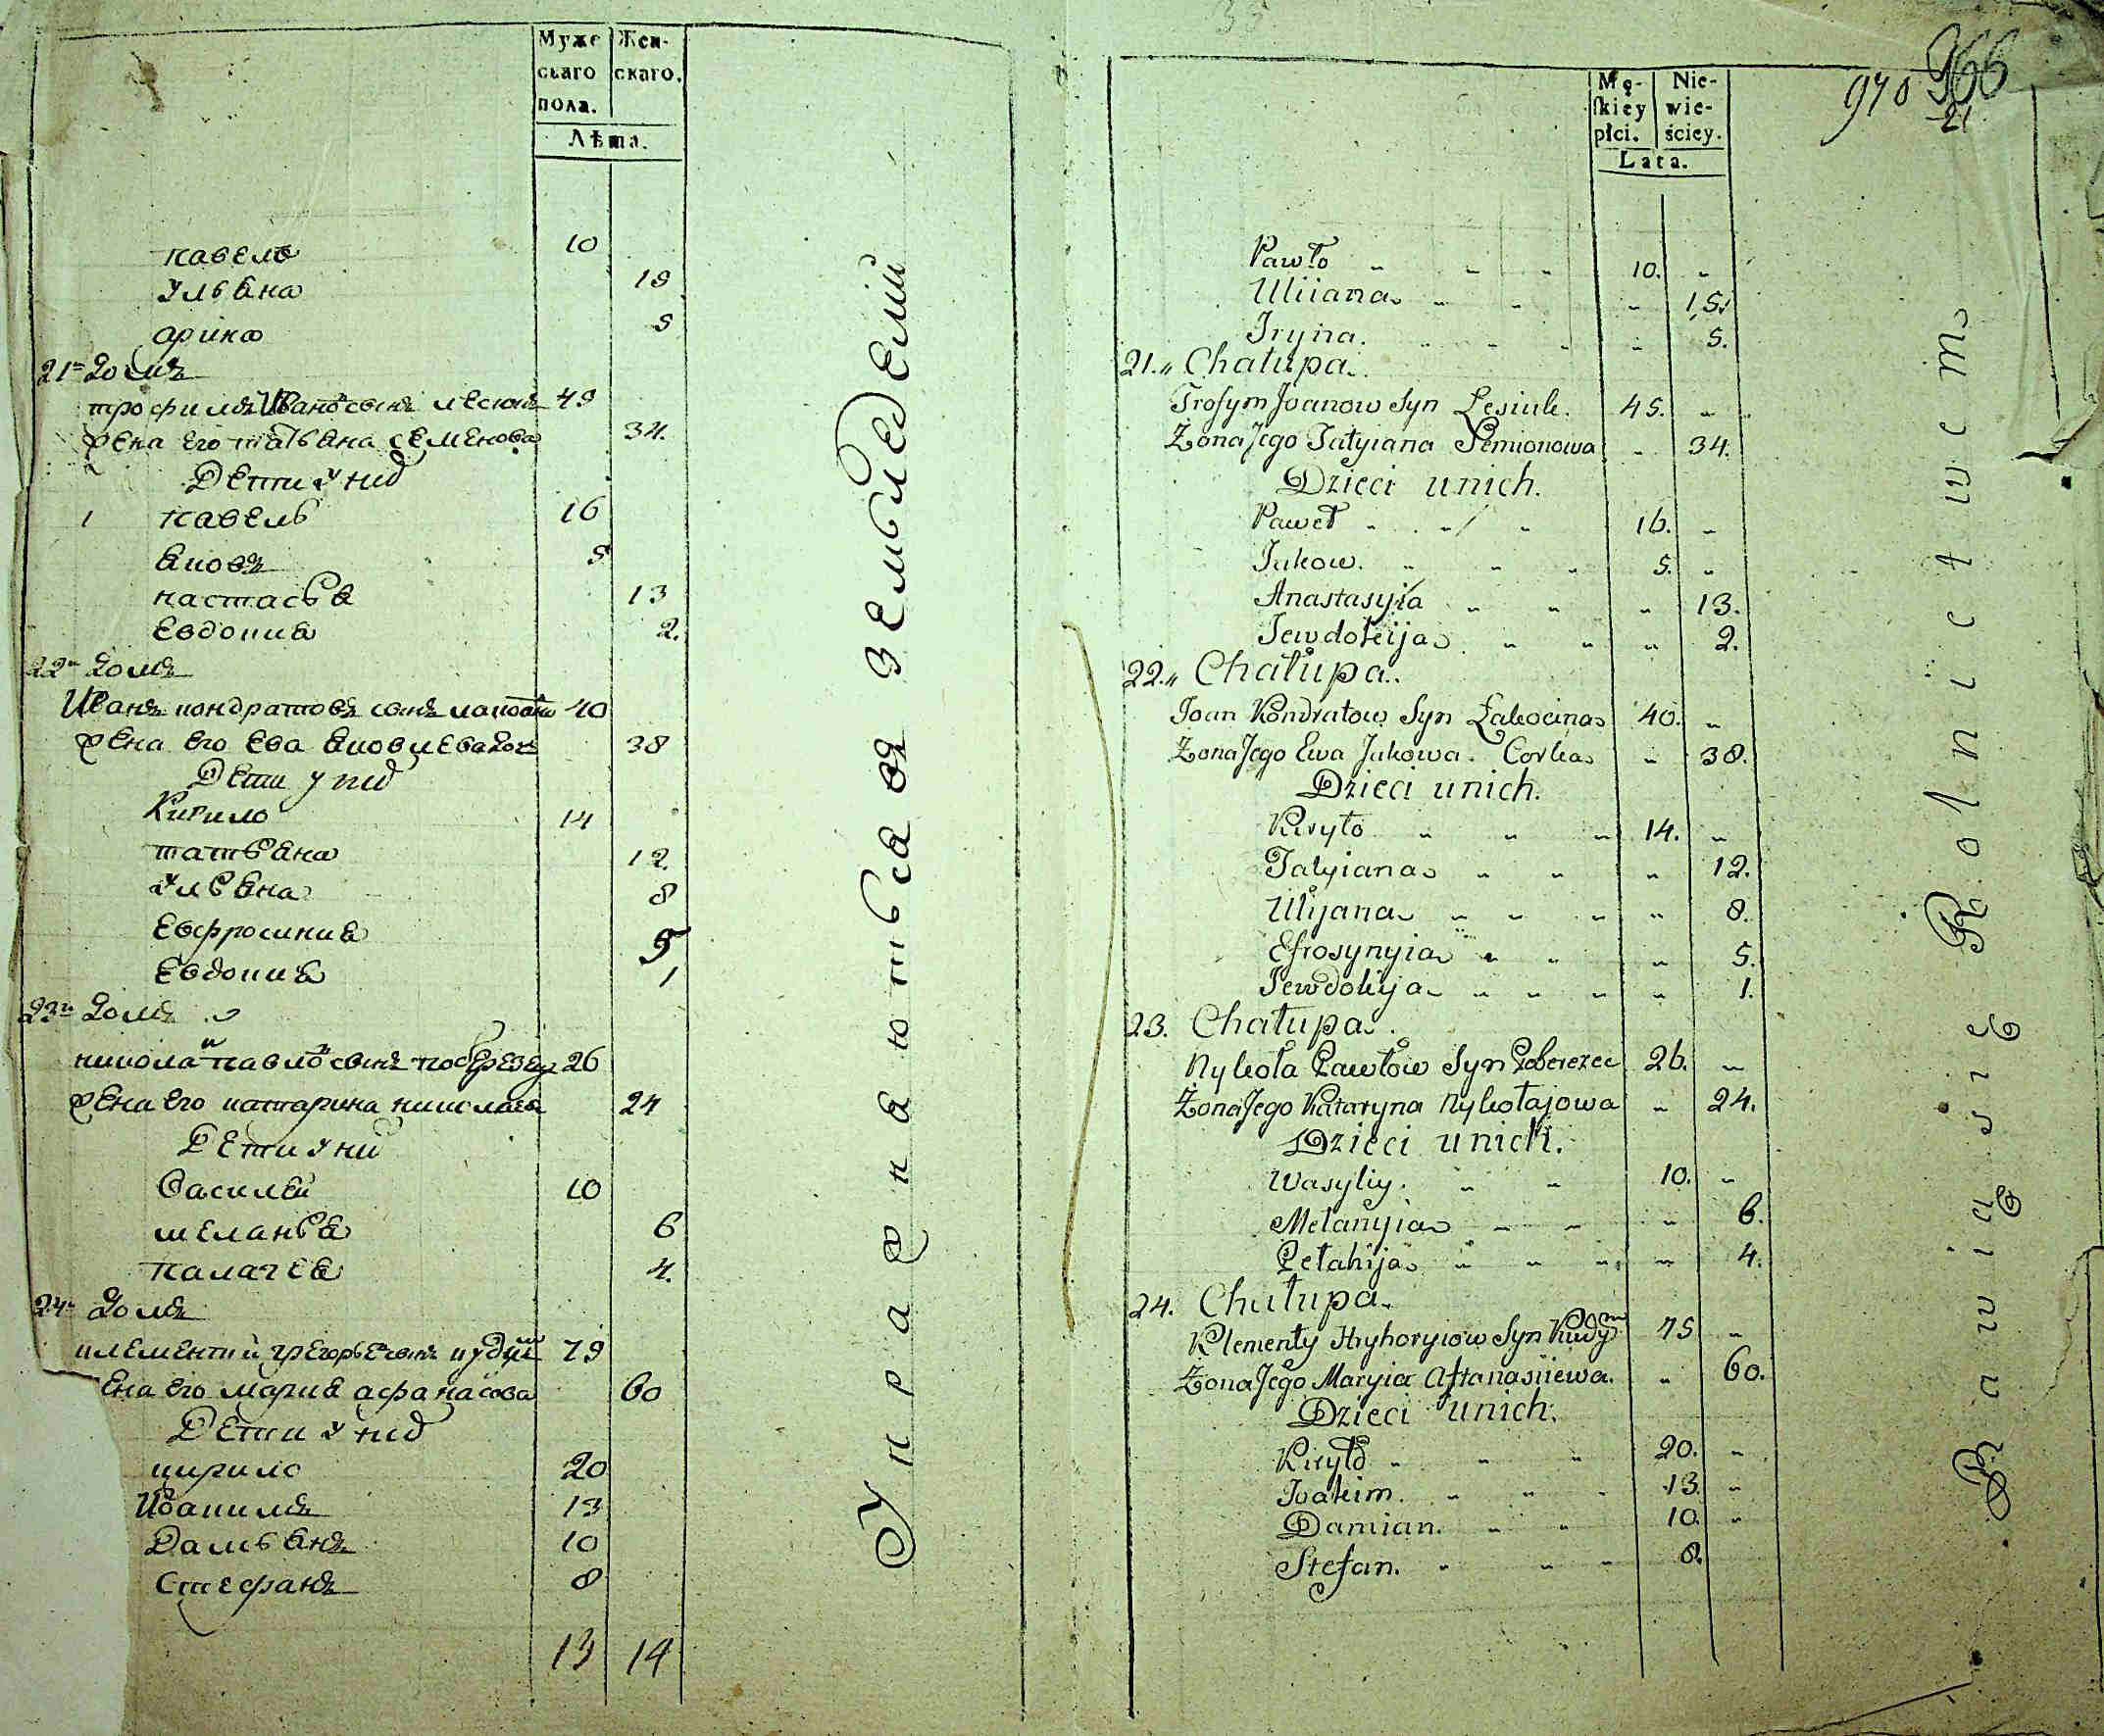 Муже
скаго
пола.
Жен-
скаго.
Лѣта.
павелъ 10
Ульяна 15
арина 5
21й домъ
трофимъ Ивановъ сынъ лесюкъ 45
жена его татьяна семенова 34.
Дети у них
1 павелъ 16
яковъ 5
настасья 13
Евдокия 2.
22й домъ
Иванъ кондратовъ сынъ 40
жена его Ева яковлева дочь 38
Дети у них
Кирило 14
татьяна 12.
Ульяна 8
Евфросиния 5
Евдокия 1
23й домъ
николай павловъ сынъ поберезец 26
жена его катарина николаева 24
Дети у них
василей 10
меланья 6
палагея 4.
24й домъ
клементий григорьевъ сынъ кудим 75
жена его мария афанасова 60
Дети у них
кирило 20
Иоакимъ 13
Дамьянъ 10
Стефанъ 8
13 14
Упражняются въ земледелии
970 966
21
Mę-
skiey
płci.
Nie-
wie-
ściey.
Lata.
Pawło " " " 10. "
Uliiana " " " 15.
Iryna. " " " " 5.
21. " Chałupa.
Trofym Joanow Syn Lesiuk. 45. "
Żona Jego Tatyiana Semionowa " 34.
Dzieci unich.
Paweł " " " 16. "
Jakow. " " " 5. "
Anastasyia " " " 13.
Jewdokija " " " 2.
22. " Chałupa.
Joan Kondratow Syn Łakocina 40. "
Żona Jego Ewa Jakowa Corka " 38.
Dzieci unich.
Kiryło " " " 14. "
Tatyiana " " " 12.
Ulijana " " " " 8.
Efrosynyia " " " 5.
Jewdokija " " " " " 1.
23. Chałupa.
Nykoła Pawłow Syn Poberezec 26. "
Żona Jego Kataryna Nykołajowa " 24.
Dzieci unich.
Wasyliy. " " 10. "
Melanyia " " " 6.
Pelahija " " " " 4.
24. Chałupa.
Klementy Hryhoryiow Syn Kudym 75 "
Żona Jego Maryia Aftanasiiewa. " 60.
Dzieci unich.
Kiryło " " " 20. "
Joakim. " " " 13. "
Damian. " " 10. "
Stefan. " " " 8.
Bawią się Rolnictwem